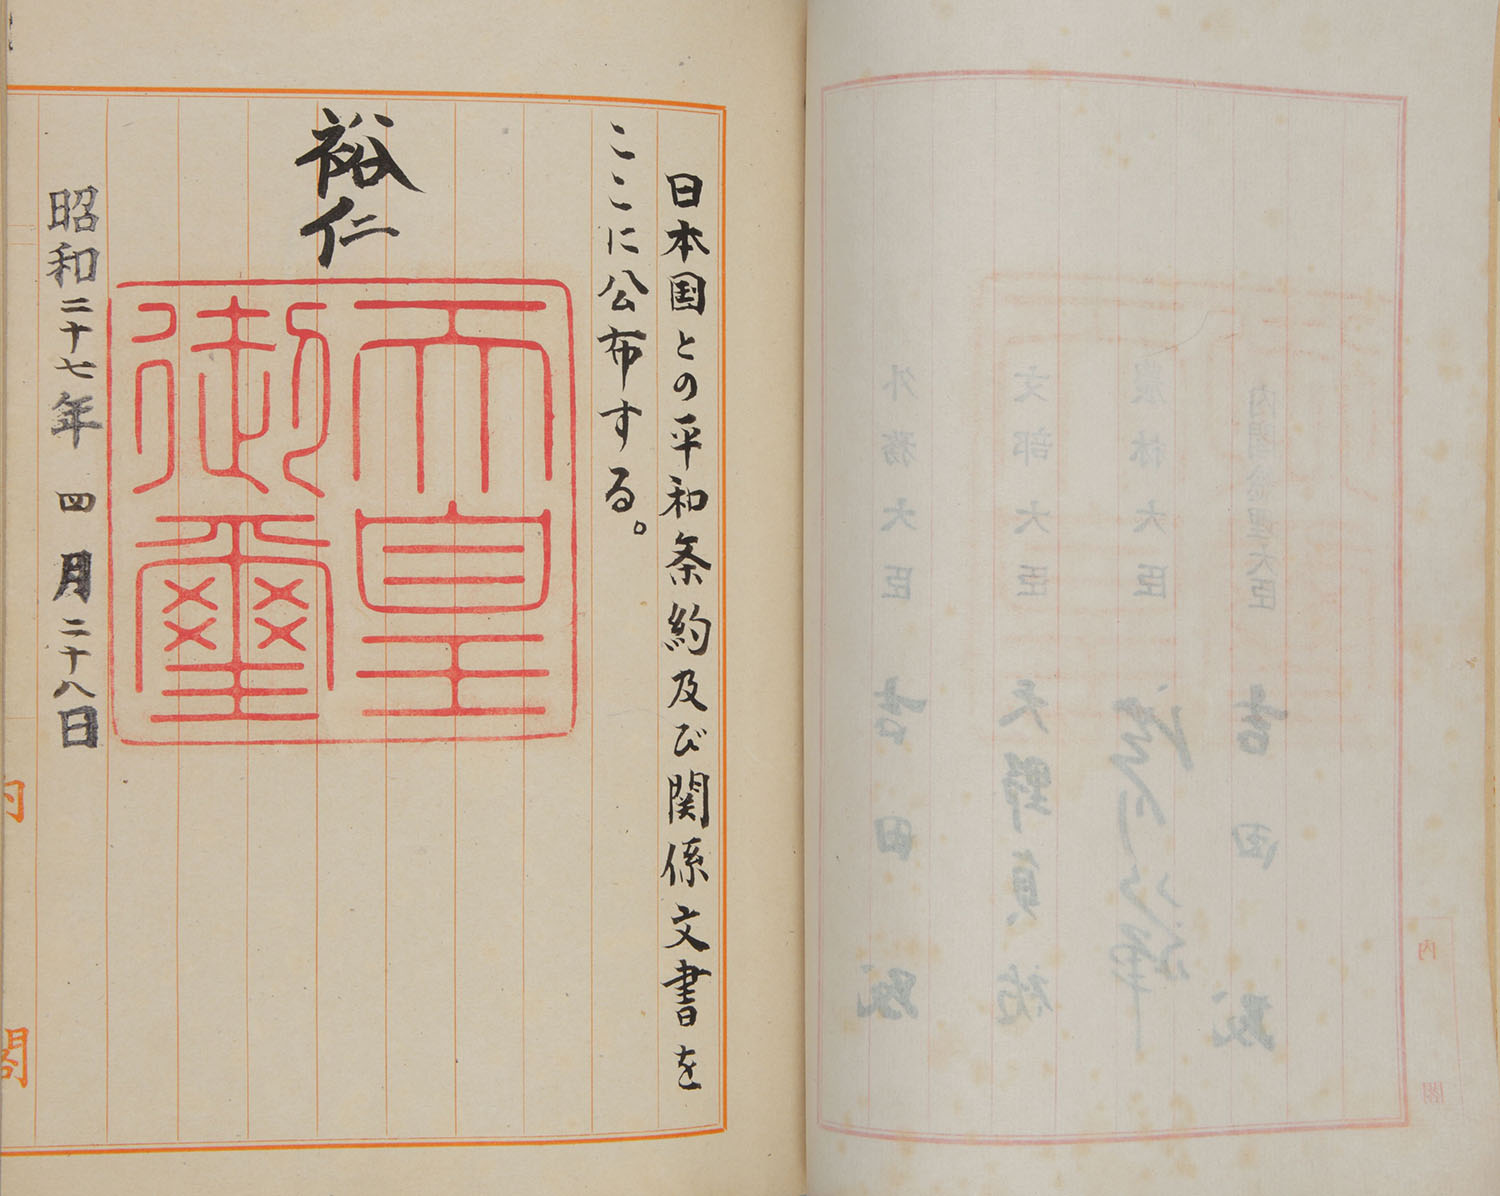 内閣総理大臣 吉田茂
農林大臣
文部大臣 天野貞祐
外務大臣 吉田茂
内閣
日本国との平和条約及び関係文書を
ここに公布する。
裕仁
天皇
御璽
昭和二十七年四月二十八日
内閣